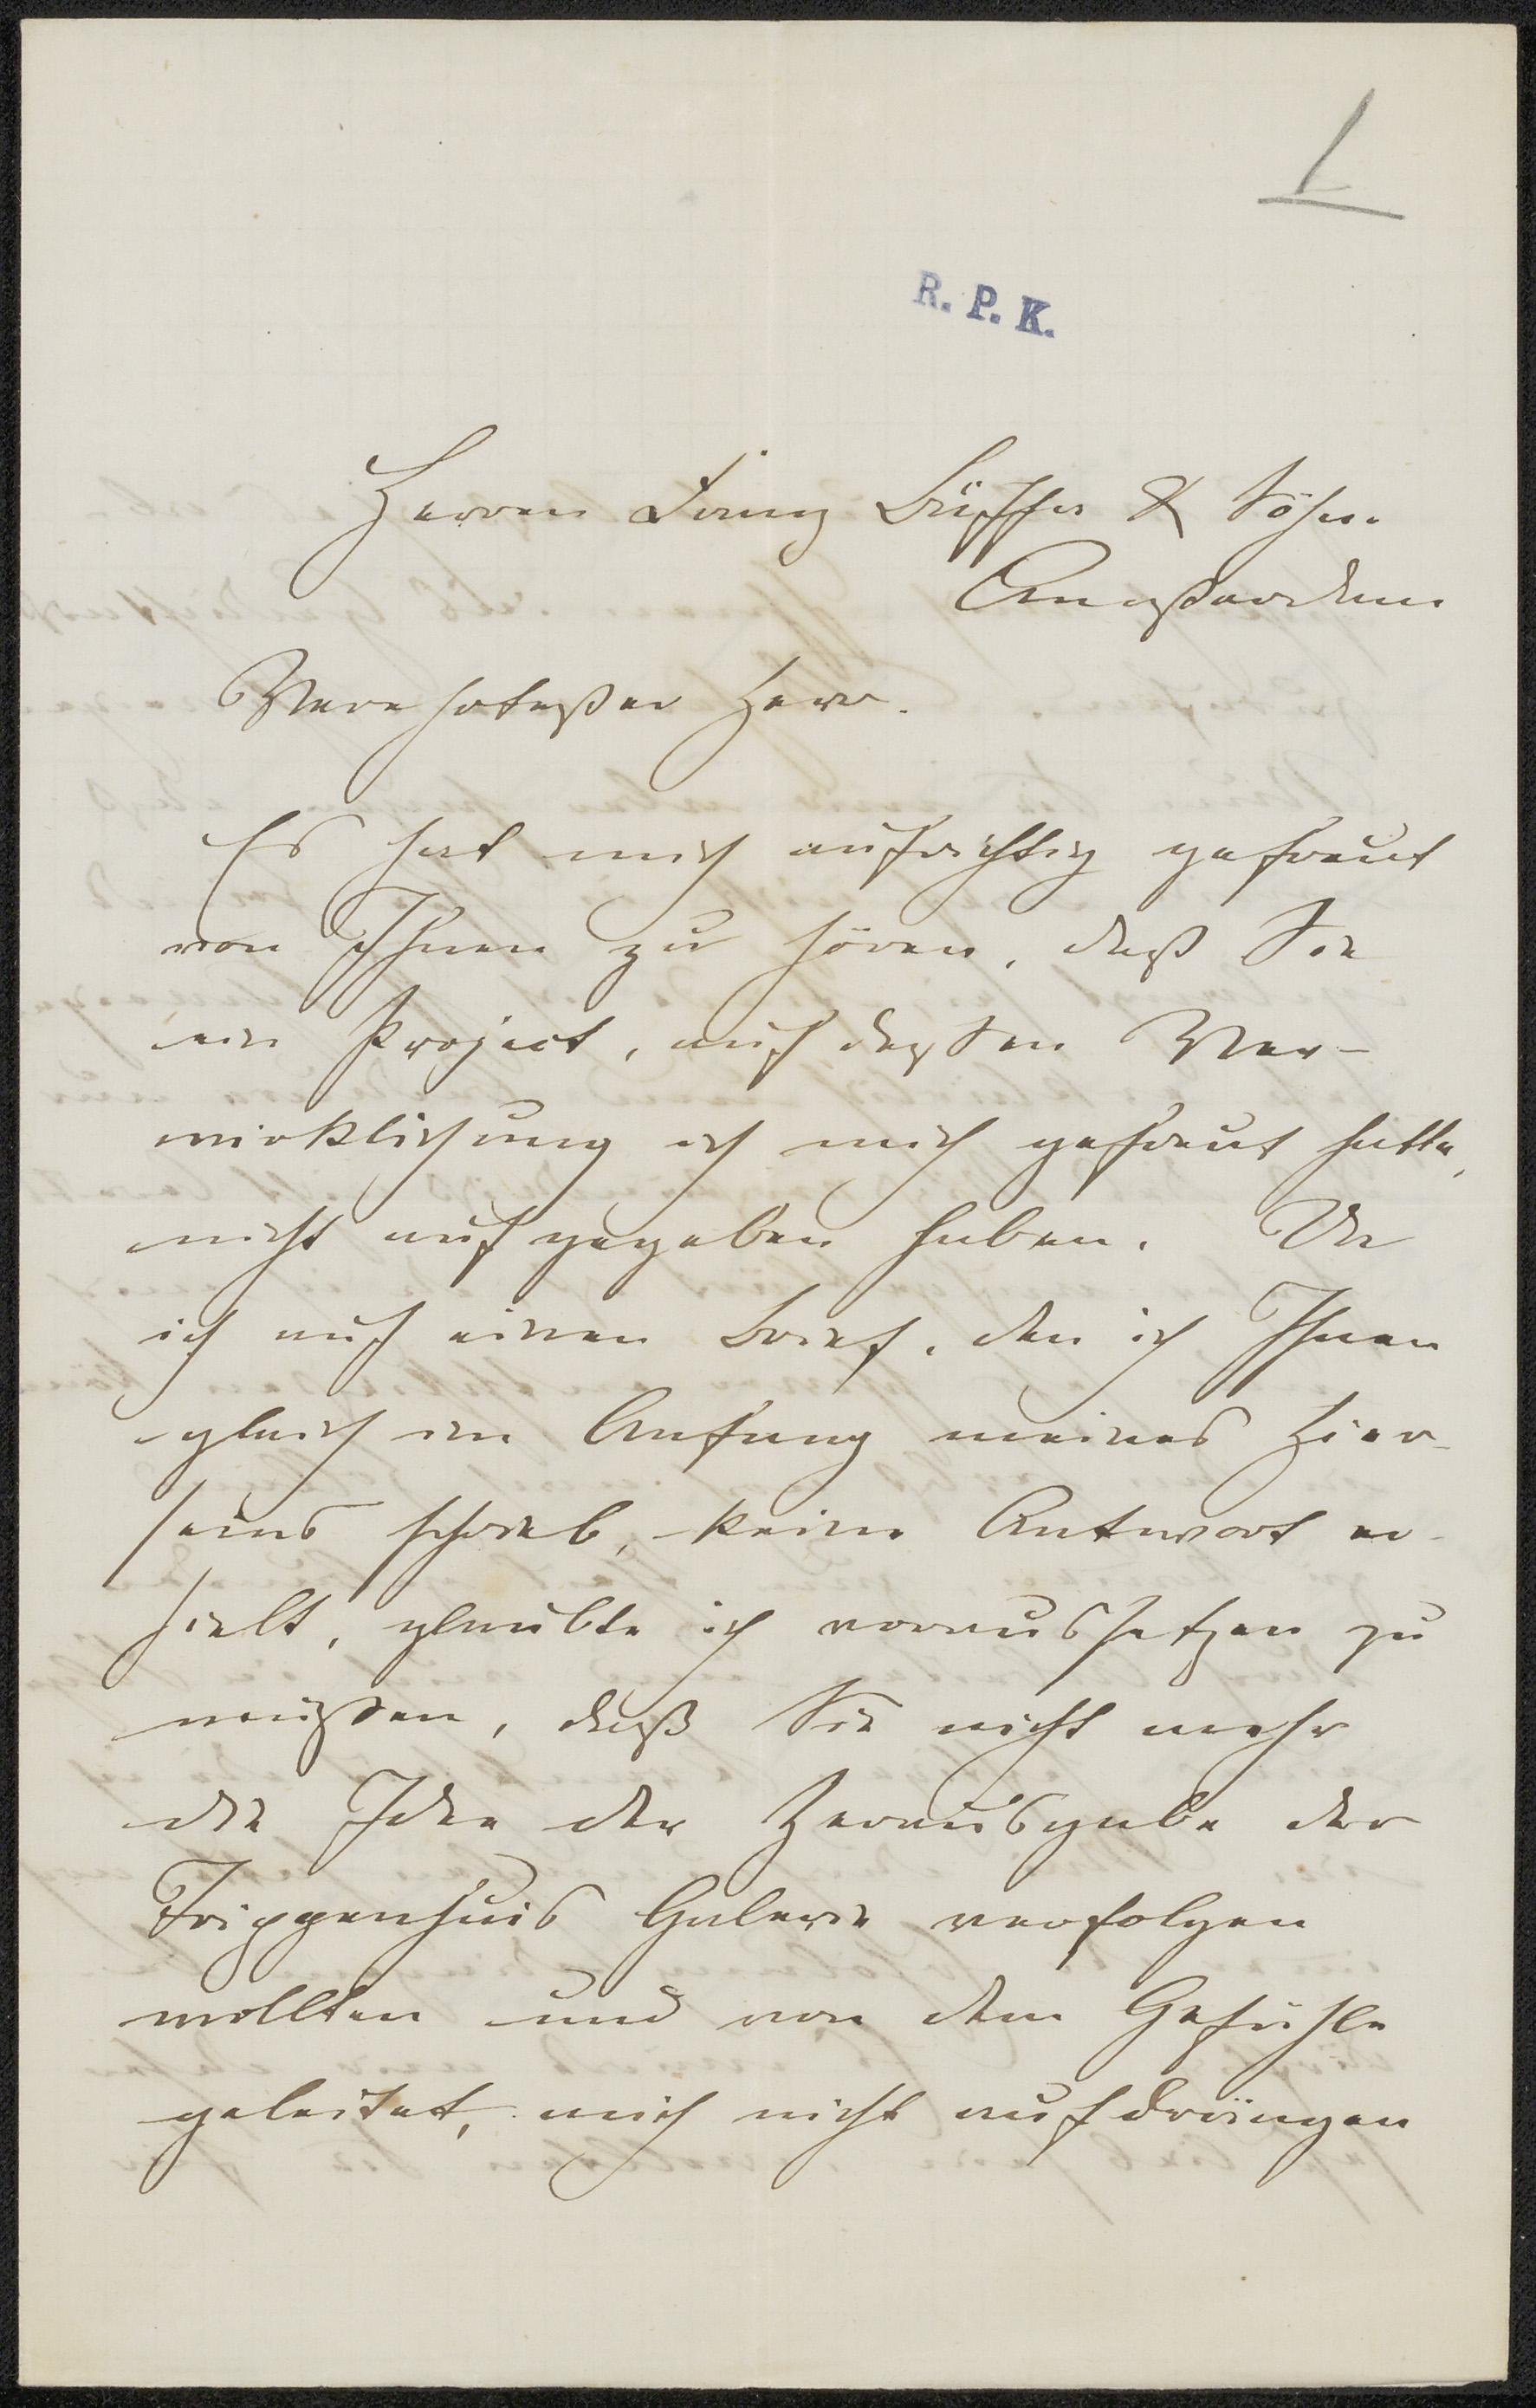 1
R. P. K.
Herren Franz Buffa & Söhne
Amsterdam
Verehrtester Herr.
Es hat mich aufrichtig gefreut
von Ihnen zu hören, daß Sie
ein Project, auf dessen Ver-
wirklichung ich mich gefreut hatte,
nicht aufgegeben haben. Da
ich auf einen Brief, den ich Ihnen
gleich im Anfang meines Hier-
seins schrieb, keine Antwort er-
hielt, glaubte ich voraussetzen zu
müssen, daß Sie nicht mehr
die Idee der Herausgabe der
Trippenhuis Galerie verfolgen
wollten und von dem Gefühle
geleitet, mich nicht aufdrängen